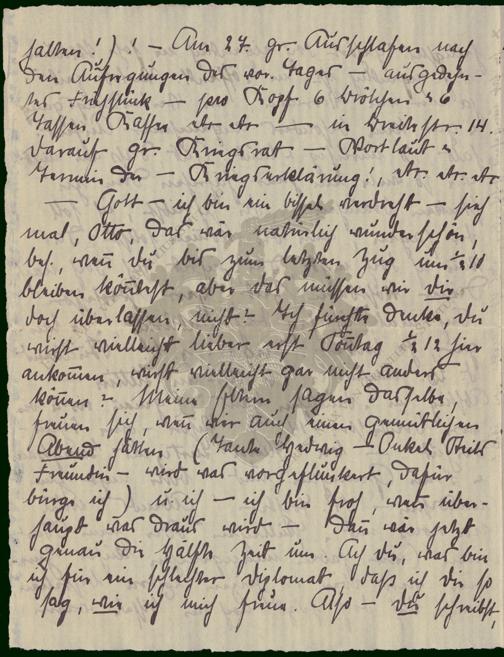 halten!)! – Am 27. gr. Ausschlafen nach
den Aufregungen des vor. Tages – ausgedehn-
tes Frühstück – pro Kopf 6 Brötchen u 6
Tassen Kaffee etc etc – in Breitestr. 14.
darauf gr. Kriegsrat – Wortlaut u
Termin der – Kriegserklärung!, etc. etc. etc
– Gott – ich bin ein bissel verdreht – sieh
mal, Otto, das wär natürlich wunderschön,
bes. wenn du bis zum letzten Zug um ½10
bleiben könntest, aber das müssen wir dir
doch überlassen, nicht? Ich denke, du
wirst vielleicht lieber erst Sonntag ½12 hier
ankommen, wirst vielleicht gar nicht anders
können? Meine Eltern sagen dasselbe,
freuen sich, wenn wir auch einen gemütlichen
Abend hätten (Tante Hedwig – Onkel
Freundin – wird was vorgeflunkert, dafür
bürge ich) u ich – ich bin froh, wenn über-
haupt was draus wird – dann wär jetzt
genau die Hälfte Zeit um. Ach du, was bin
ich für ein schlechter Diplomat, daß ich dir so
sag, wie ich mich freue. Also – du schreibst,